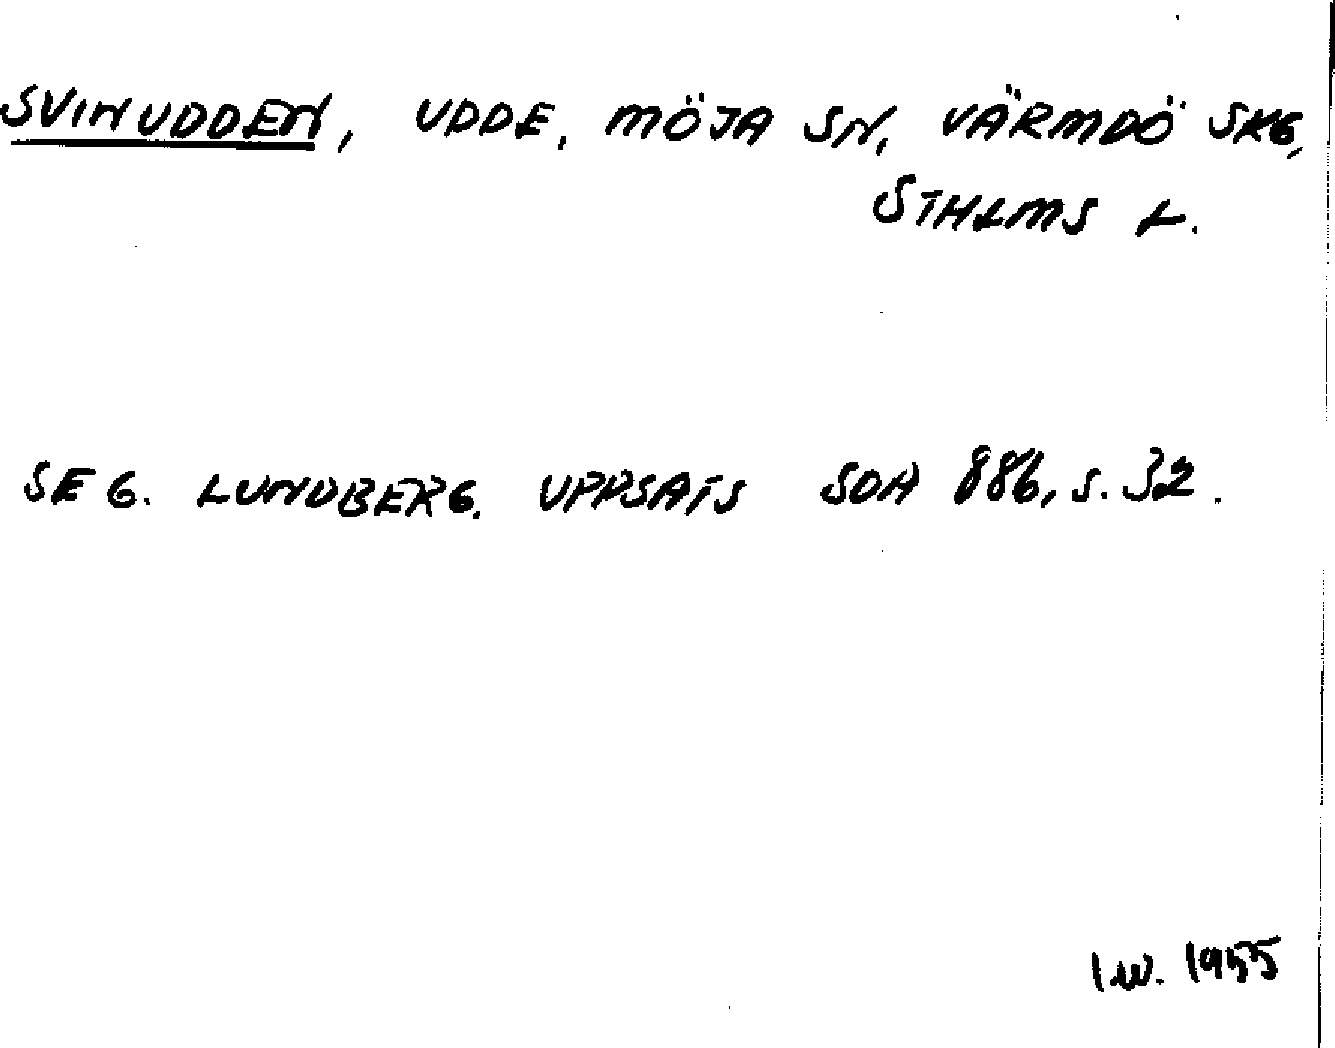 SVINUDDEN, UDDE, MÖJA SN, VÄRMDÖ SKG,
STHLMS L.
SE G. LUNDBERG. UPPSATS SOA 886, S. 32.
I.W. 1955